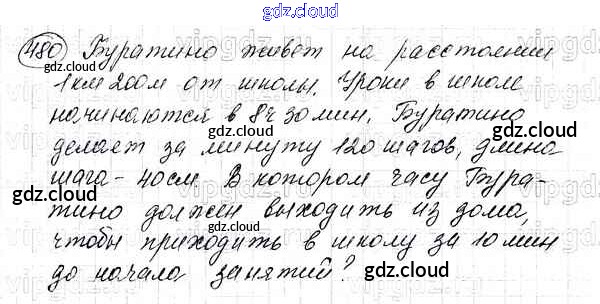 gdz.cloud
480 Буратино живет на расстоянии
1 км 200 м от школы. Уроки в школе
начинаются в 8 ч 30 мин. Буратино
делает за минуту 120 шагов, длина
шага - 40 см. В котором часу Бура-
тино должен выходить из дома,
чтобы приходить в школу за 10 мин
до начала занятий?
gdz.cloud
gdz.cloud
gdz.cloud
gdz.cloud
gdz.cloud
gdz.cloud
gdz.cloud
gdz.cloud